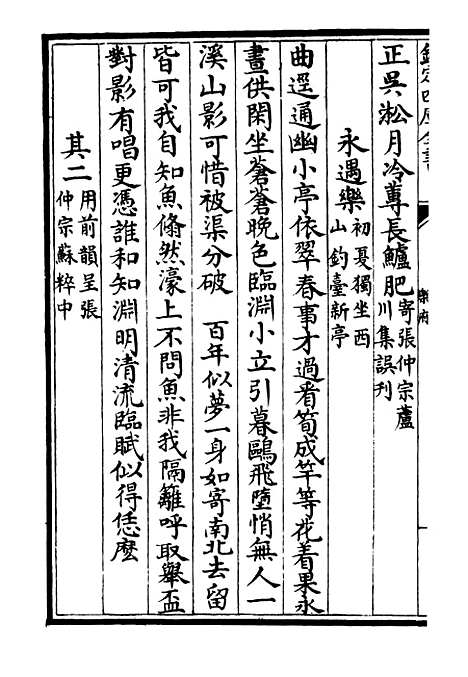 正吳淞月冷蓴長鱸肥
寄張仲宗蘆
川集誤刋
永遇樂
初夏獨坐西
山釣臺新亭
曲逕通幽小亭依翠春事才過看筍成竿等花着果永
晝供閑坐蒼蒼晚色臨淵小立引暮鷗飛墮悄無人一
溪山影可惜被渠分破　百年似夢一身如寄南北去留
皆可我自知魚翛然濠上不問魚非我隔籬呼取舉盃
對影有唱更憑誰和知淵明清流臨賦似得恁麽
其二
用前韻呈張
仲宗蘇粹中